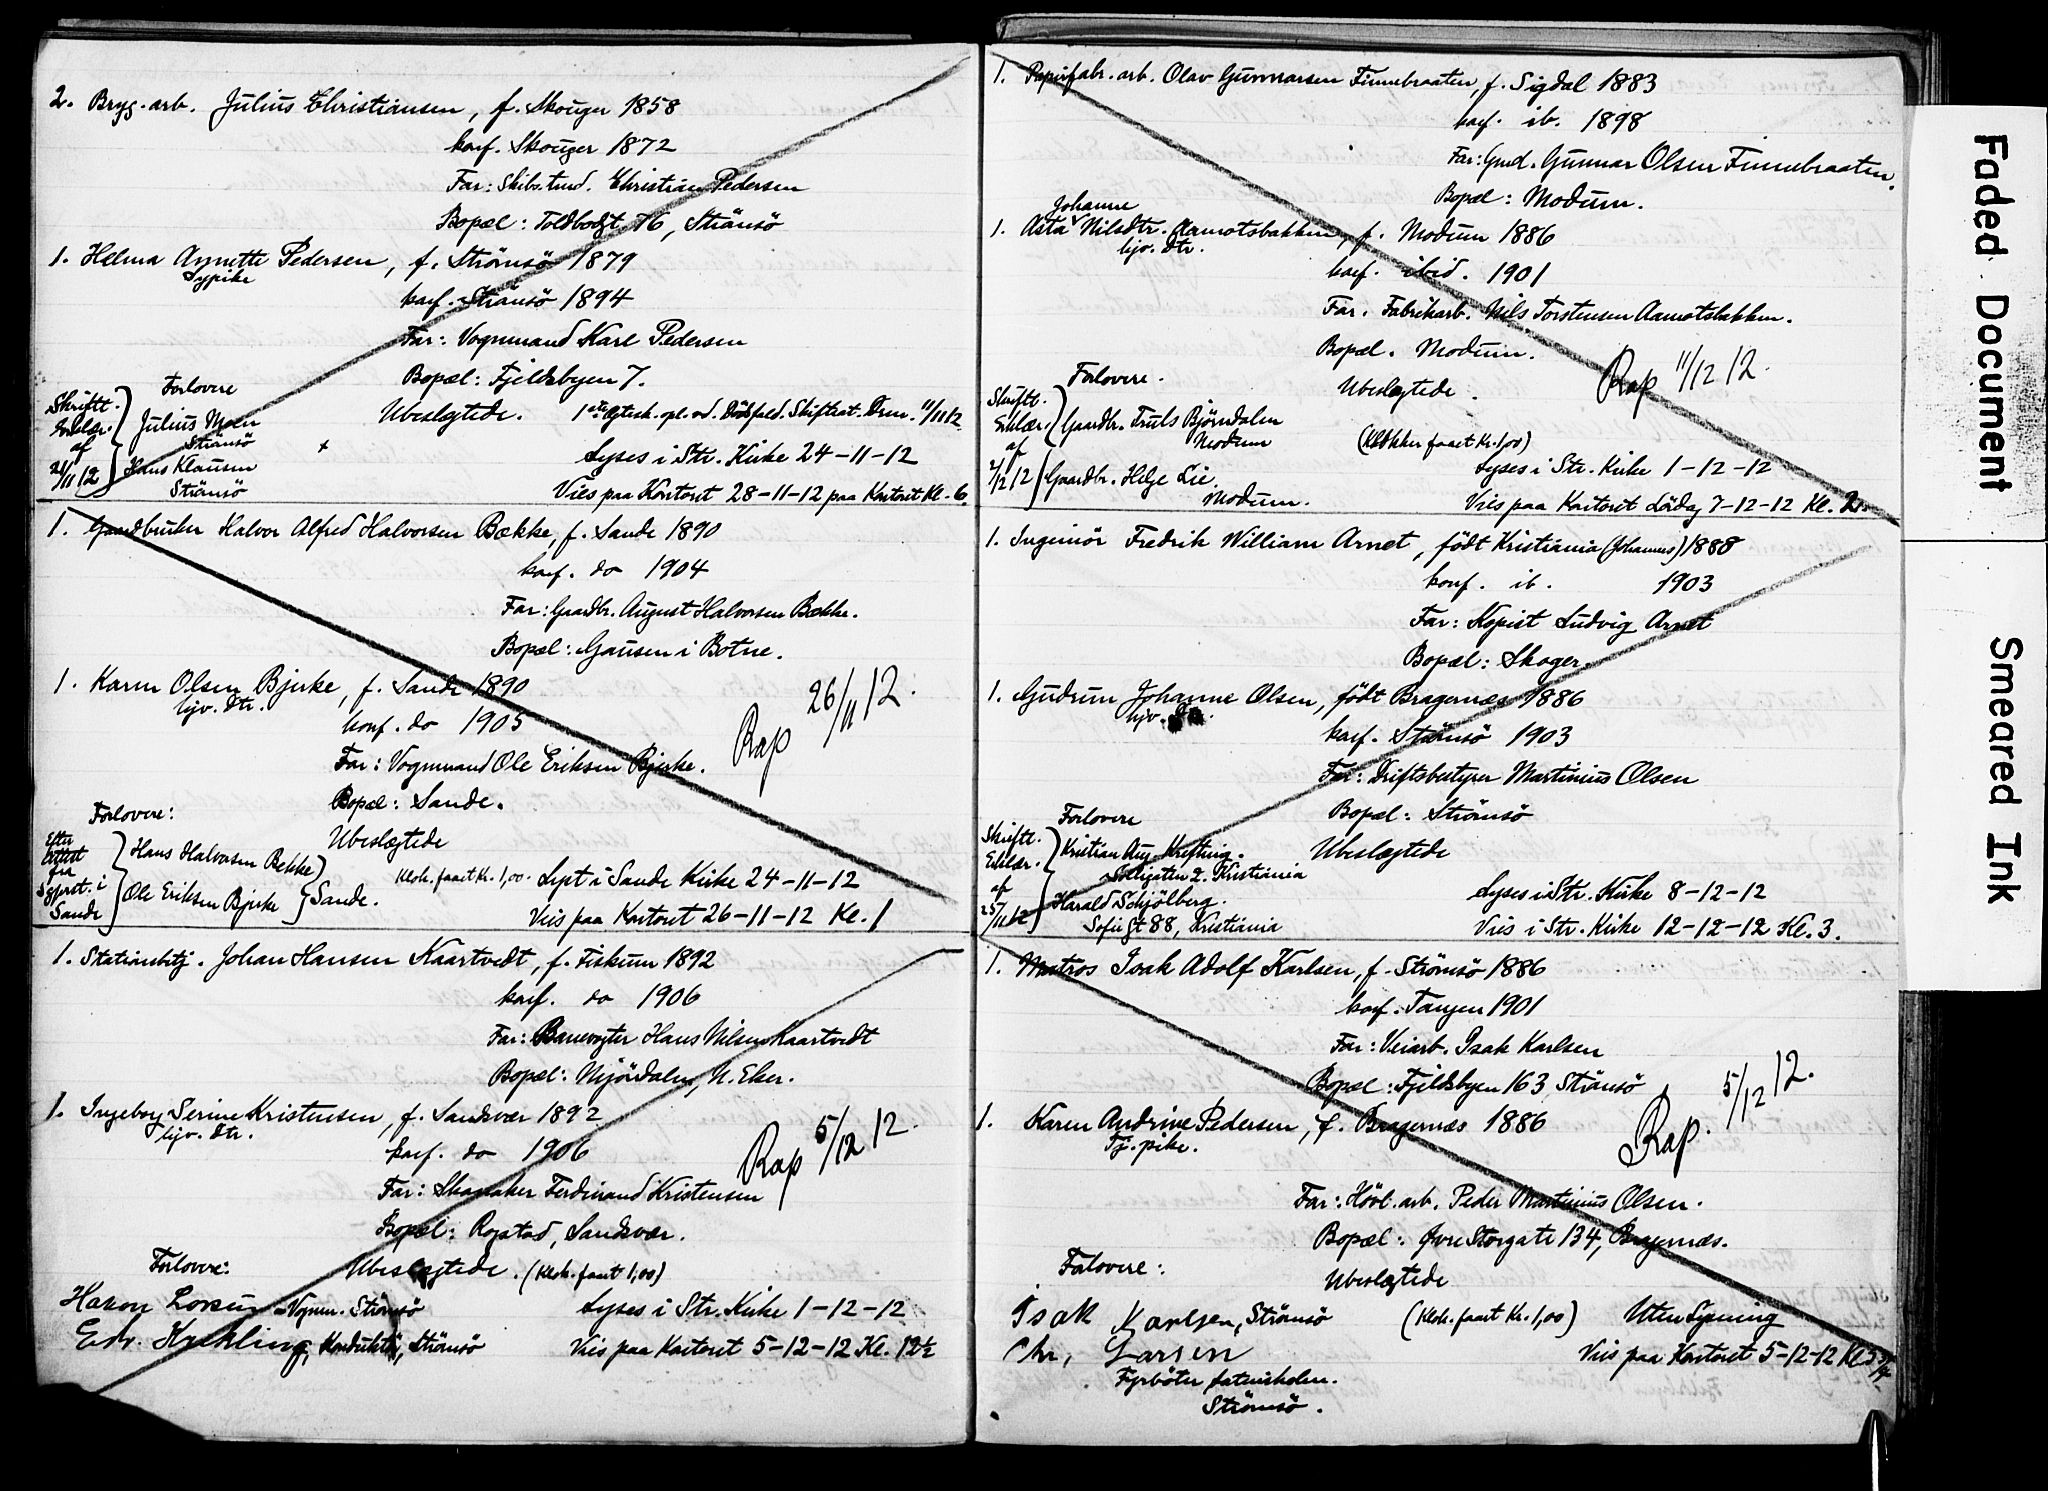 2. Bryg. arb. Julius Christiansen, f. Skouger 1858
konf. Skouger 1872
Far: Skibstmd. Christian Pedersen
Bopæl: Toldbodgt. 76, Strömsö
1. Helma Annette Pedersen, f. Strömsö 1879
Sypike
konf. Strömsö 1894
Far: Vognmand Karl Pedersen
Bopæl: Fjeldsbyen 7.
Forlovere
Skriftl. Erklær. af 21/11 12
Julius Moen
Strömsö
Hans Klausen
Strömsö
Ubeslegtede. 1ste Ægtesk. opl. ved Dödsfald. Skifteat. Drm. 11/11 12
Lyses i Str. Kirke 24-11-12
Vies paa Kontoret 28-11-12 paa Kontoret Kl. 6.
1. Gaardbruker Halvor Alfred Halvorsen Bække, f. Sande 1890
konf. do 1904
Far: Gaardbr. August Halvorsen Bække.
Bopæl: Gausen i Botne.
1. Karen Olsen Bjerke, f. Sande 1890
hjv. dtr.
konf. do 1905
Far: Vognmand Ole Eriksen Bjerke.
Bopæl: Sande.
Rap 26/11 12.
Forlovere:
Ubeslegtede
Efter Attest fra Sgprst. i Sande
Hans Halvorsen Bekke
Ole Eriksen Bjerke
Sande.
Klok. faaet Kr. 1,00. Lyst i Sande Kirke 24-11-12
Vies paa Kontoret 26-11-12 Kl. 1
1. Stationsbtj. Johan Hansen Kaartvedt, f. Fiskum 1892
konf. do 1906
Far: Banevogter Hans Nilsen Kaartvedt
Bopæl: Mjöndalen, N. Eker.
1. Ingeborg Serine Kristensen, f. Sandsvær 1892
hjv. dtr.
konf. do 1906
Far: Skomaker Ferdinand Kristensen
Bopæl: Rogstad, Sandsvær.
Rap 5/12 12.
Forlovere:
Ubeslegtede. (Klok. faaet 1,00)
Hakon Lorsen Vognm. Strömsö
Edv. Kuhling, Konduktör, Strömsö
Lyses i Str. Kirke 1-12-12
Vies paa Kontoret 5-12-12 Kl. 12½
1. Papirfabr. arb. Olav Gunnarsen Finnebraaten, f. Sigdal 1883
konf. ib. 1898
Far: Gmd. Gunnar Olsen Finnebraaten.
Bopæl: Modum.
Johanne
1. Asta Nilsdtr. Aamotsbakken, f. Modum 1886
hjv. dtr.
konf. ibid. 1901
Far. Fabrikarb. Nils Torstensen Aamotsbakken.
Bopæl. Modum.
Rap 11/12 12.
Forlovere.
Ubeslegtede.
Skriftl. Erklær. af 2/12 12
Gaardbr. Truls Björndalen
Modum
Gaardbr. Helge Lie.
Modum.
(Klokker faaet Kr. 1,00)
Lyses i Str. Kirke 1-12-12
Vies paa Kontoret Lördag 7-12-12 Kl. 2.
1. Ingeniör Fredrik William Arnet, födt Kristiania (Johannes) 1888
konf. ib. 1903
Far: Kopist Ludvig Arnet
Bopæl: Skoger.
1. Gudrun Johanne Olsen, födt Bragernæs 1886
hjv.
konf. Strömsö 1903
Far: Driftsbestyrer Martinius Olsen
Bopæl: Strömsö
Forlovere
Ubeslegtede
Skriftl. Erklær. af 25/11 12
Kristian Aug. Krefting.
Solligaten 2. Kristiania
Harald Schjölberg.
Sofiegt 88, Kristiania
Lyses i Str. Kirke 8-12-12
Vies i Str. Kirke 12-12-12 Kl. 3.
1. Matros Isak Adolf Karlsen, f. Strömsö 1886
konf. Tangen 1901
Far: Veiarb. Isak Karlsen
Bopæl: Fjeldsbyen 163 Strömsö
1. Karen Andrine Pedersen, f. Bragernæs 1886
Tj. pike.
Rap. 5/12 12.
Far: Hövl. arb. Peder Martinius Olsen.
Bopæl: Øvre Storgate 134, Bragernæs.
Forlovere:
Ubeslegtede
Isak Karlsen, Strömsö
Chr, Larsen
Fyrböter
Strömsö.
(Klok. faaet Kr. 1,00)
Uten Lysning
Vies paa Kontoret 5-12-12 Kl. 5
Faded Document
Smeared Ink